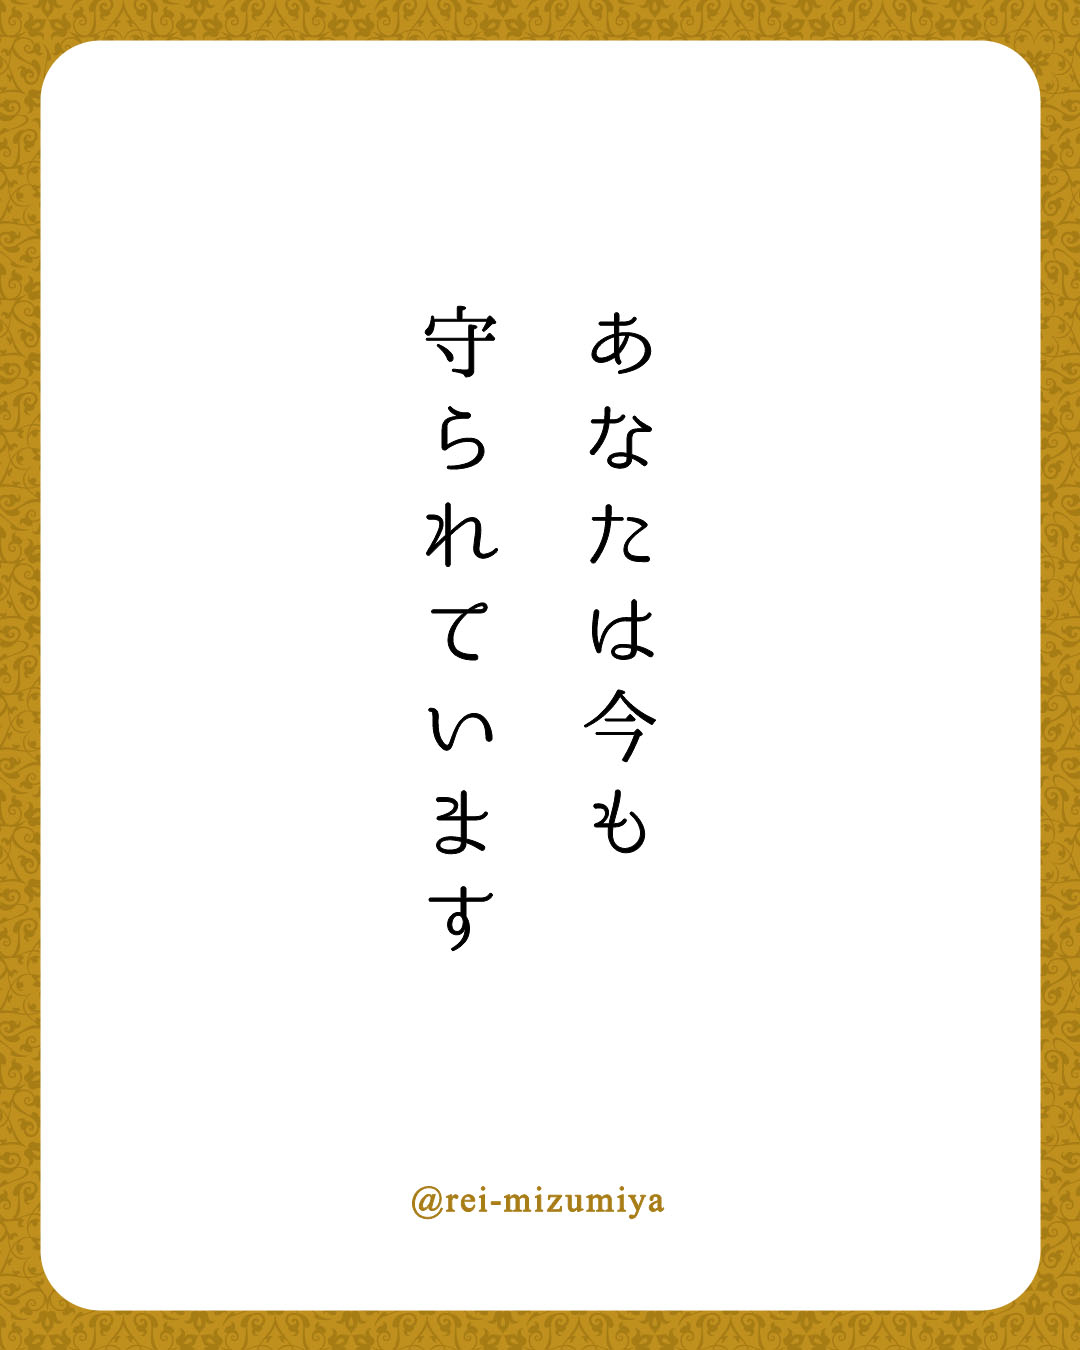 あなたは今も
守られています
@rei-mizumiya